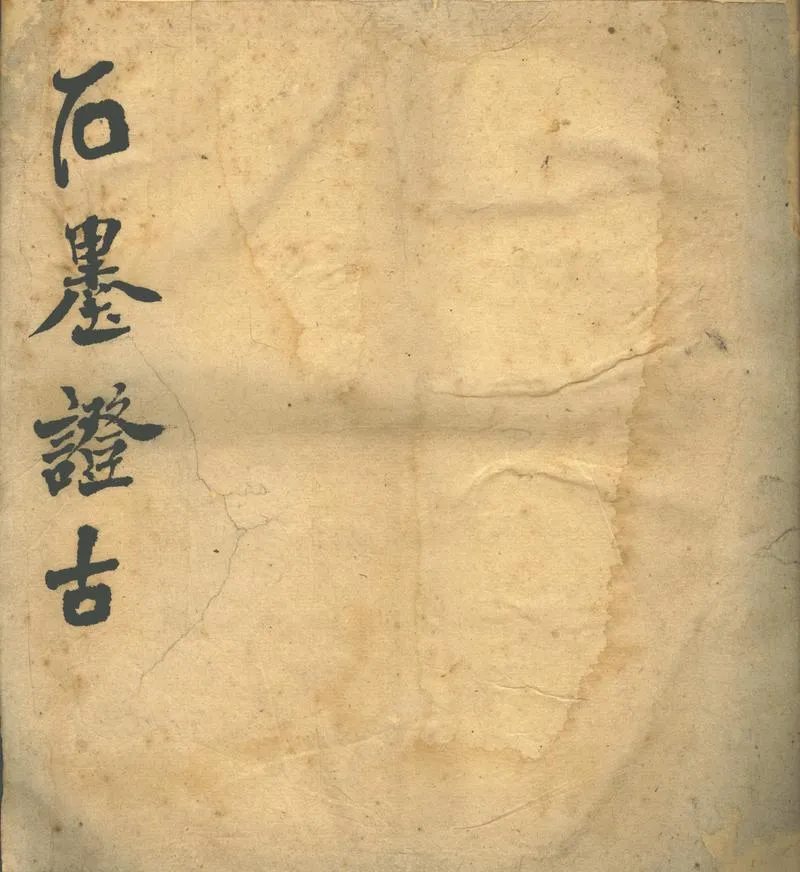 石墨證古